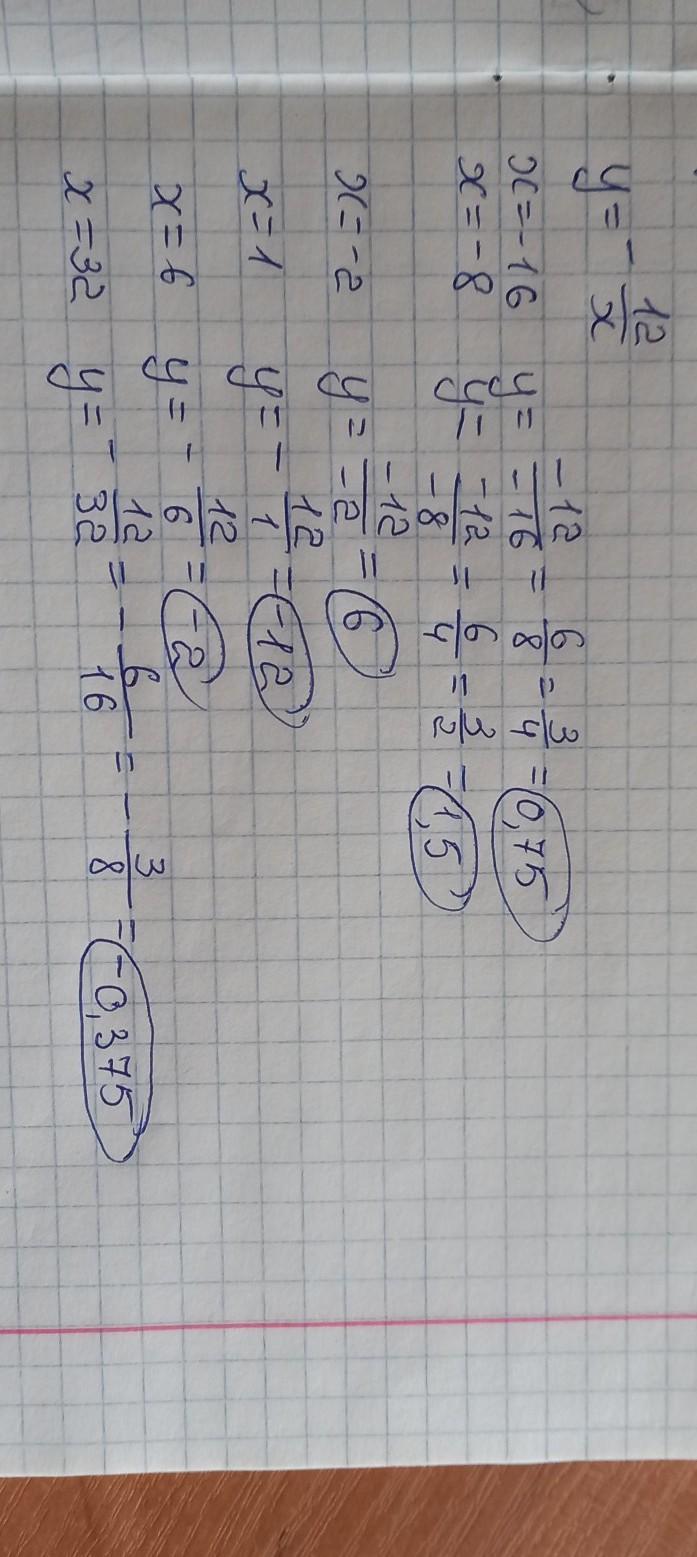 y = - 12/x
x = -16 y = -12/-16 = 6/8 = 3/4 = 0,75
x = -8 y = -12/-8 = 6/4 = 3/2 = 1,5
x = -2 y = -12/-2 = 6
x = 1 y = - 12/1 = -12
x = 6 y = - 12/6 = -2
x = 32 y = - 12/32 = - 6/16 = - 3/8 = -0,375